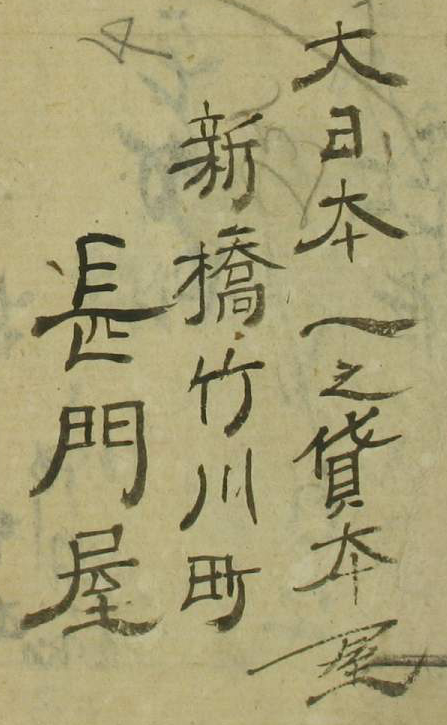 大日本一之貸本屋
新橋竹川町
長門屋